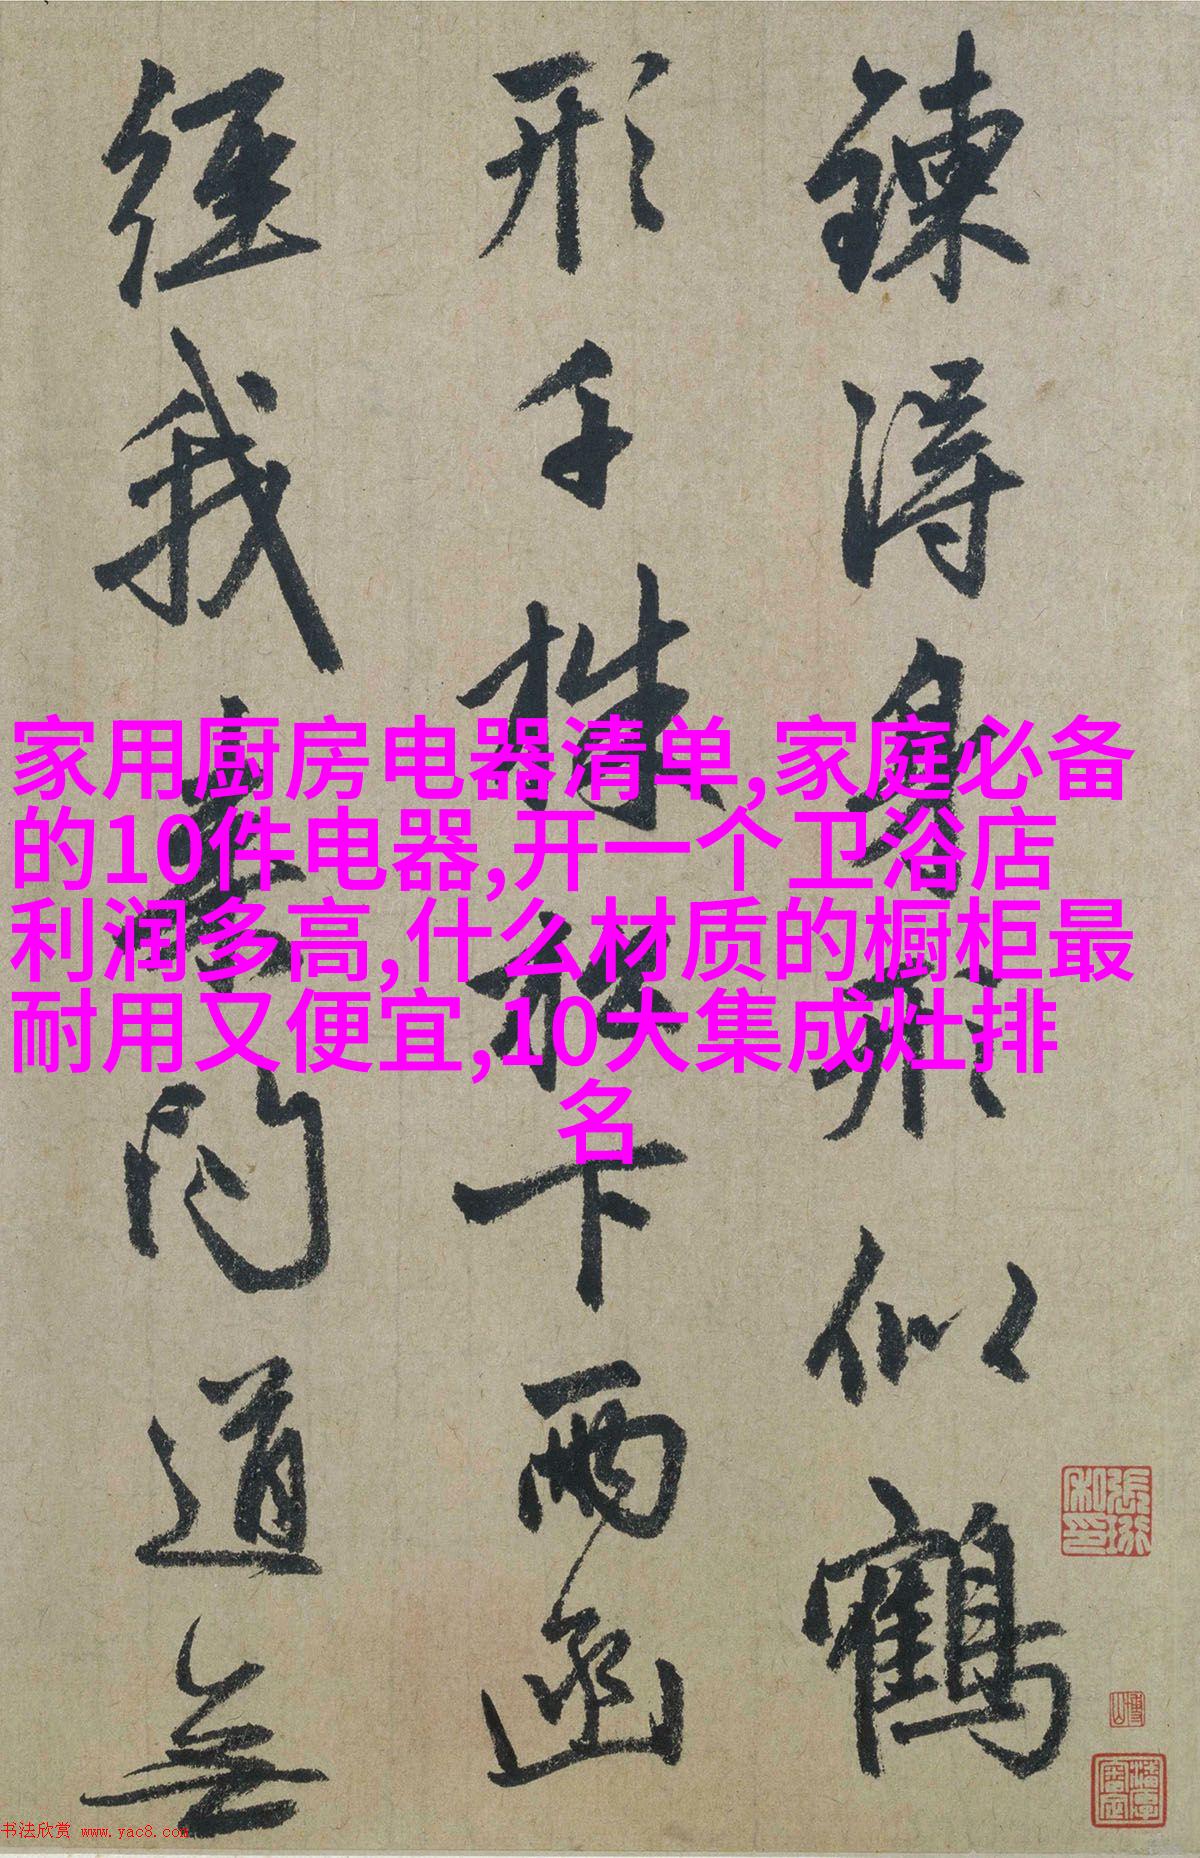 鍊得身形似鶴
形千株松下兩函
經我來問道無
家用厨房电器清单,家庭必备
的10件电器,开一个卫浴店
利润多高,什么材质的橱柜最
耐用又便宜,10大集成灶排
名
張珩私印
书法欣赏 www.yac8.com